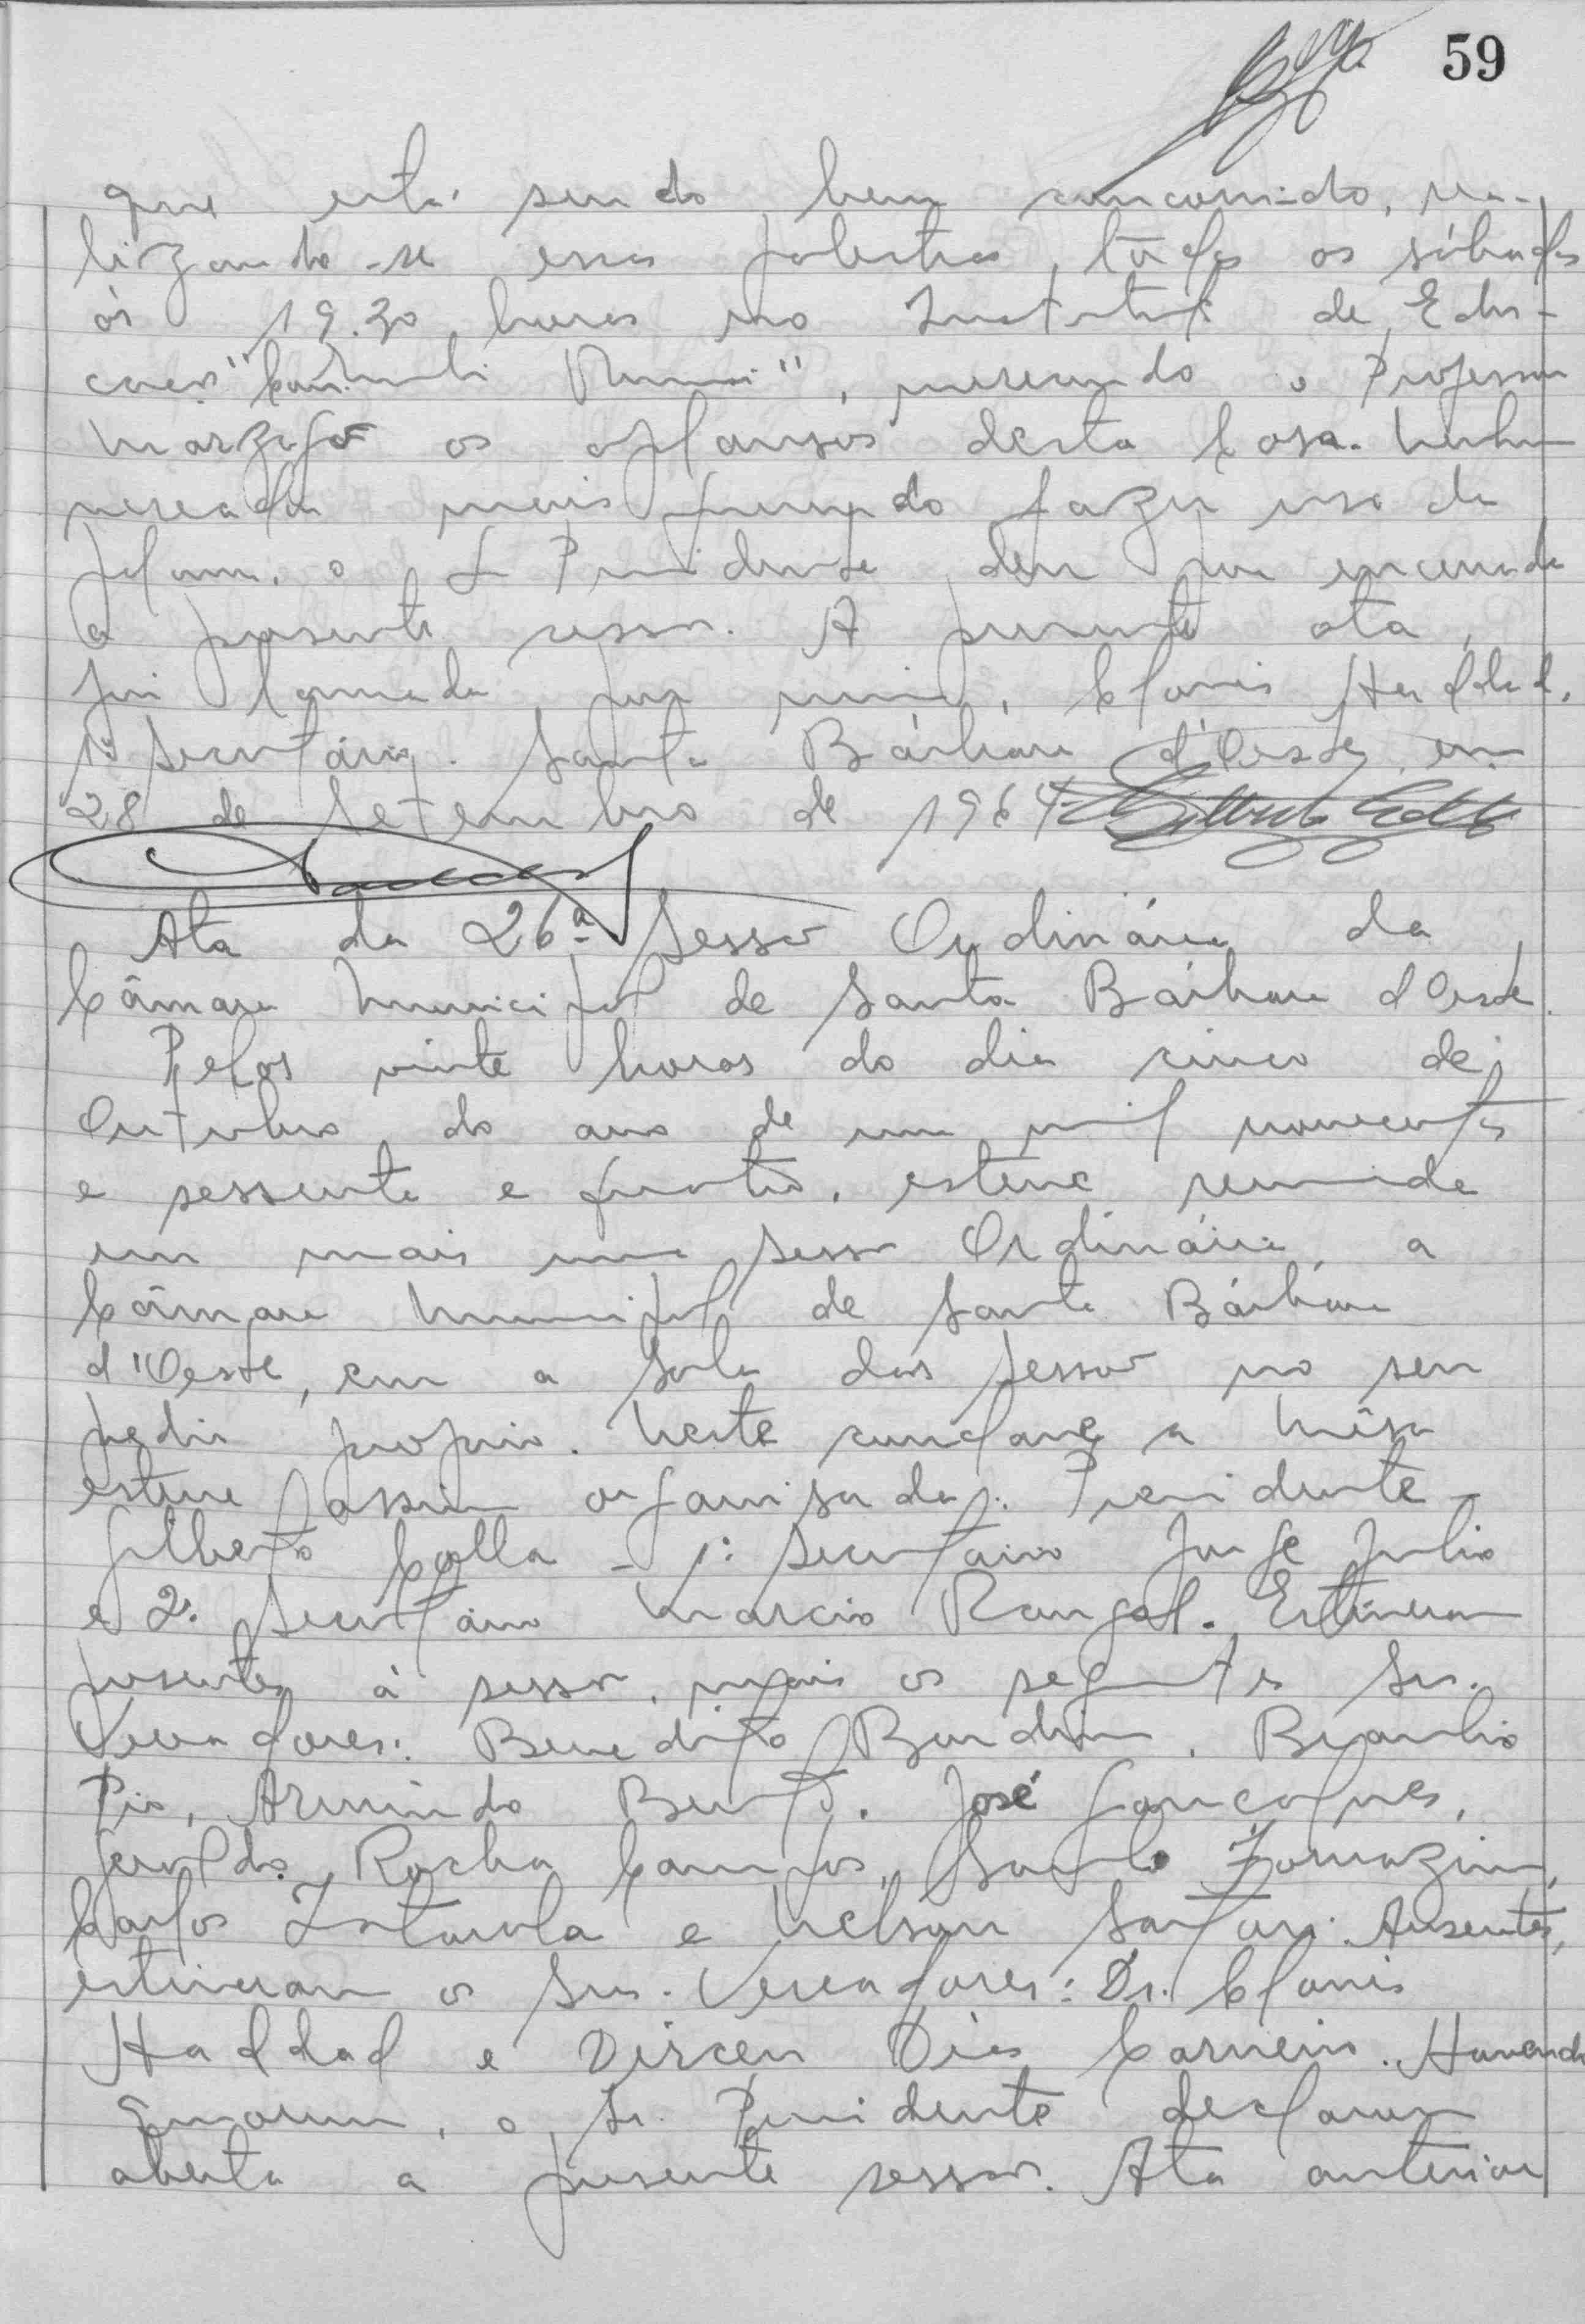 59
que está sendo bem concorrido, rea-
lizando-se essas palestras, todos os sábados
ás 19.30 horas no Instituto de Edu-
cação "Comendador Romi", merecendo o Professor
os aplausos desta Casa. Nenhum
vereador mais querendo fazer uso da
palavra, o Sr Presidente deu por encerrada
a presente sessão. A presente ata,
foi lavrada por mim, Clovis Haddad,
1º Secretário. Santa Bárbara d'Oeste, em
28 de Setembro de 1964
Ata da 26ª Sessão Ordinária da
Câmara Municipal de Santa Bárbara d'Oeste.
Pelas vinte horas do dia cinco de
Outubro do ano de um mil novecentos
e sessenta e quatro, esteve reunida
em mais uma sessão Ordinária, a
Câmara Municipal de Santa Bárbara
d'Oeste, em a Sala das Sessão no seu
predio proprio. Neste conclave a Mêsa
esteve assim organisada: Presidente -
Gilberto Colla - 1º Secretário Jorge Julio
e 2º Secretário Marcio Rangel. Estiveram
presentes à sessão, mais os seguintes Srs.
Vereadores: Benedito Bandim, Braulio
Pio, Armindo José Gonçalves,
Geraldo Rocha Campos, Santo Tomazim,
Carlos e Nelson Sartori. Ausentes,
estiveram os Srs. Vereadores: Dr. Clovis
Haddad e Dirceu Dias Carneiro. Havendo
Quorum, o Sr. Presidente declarou
aberta a presente sessão. Ata anterior